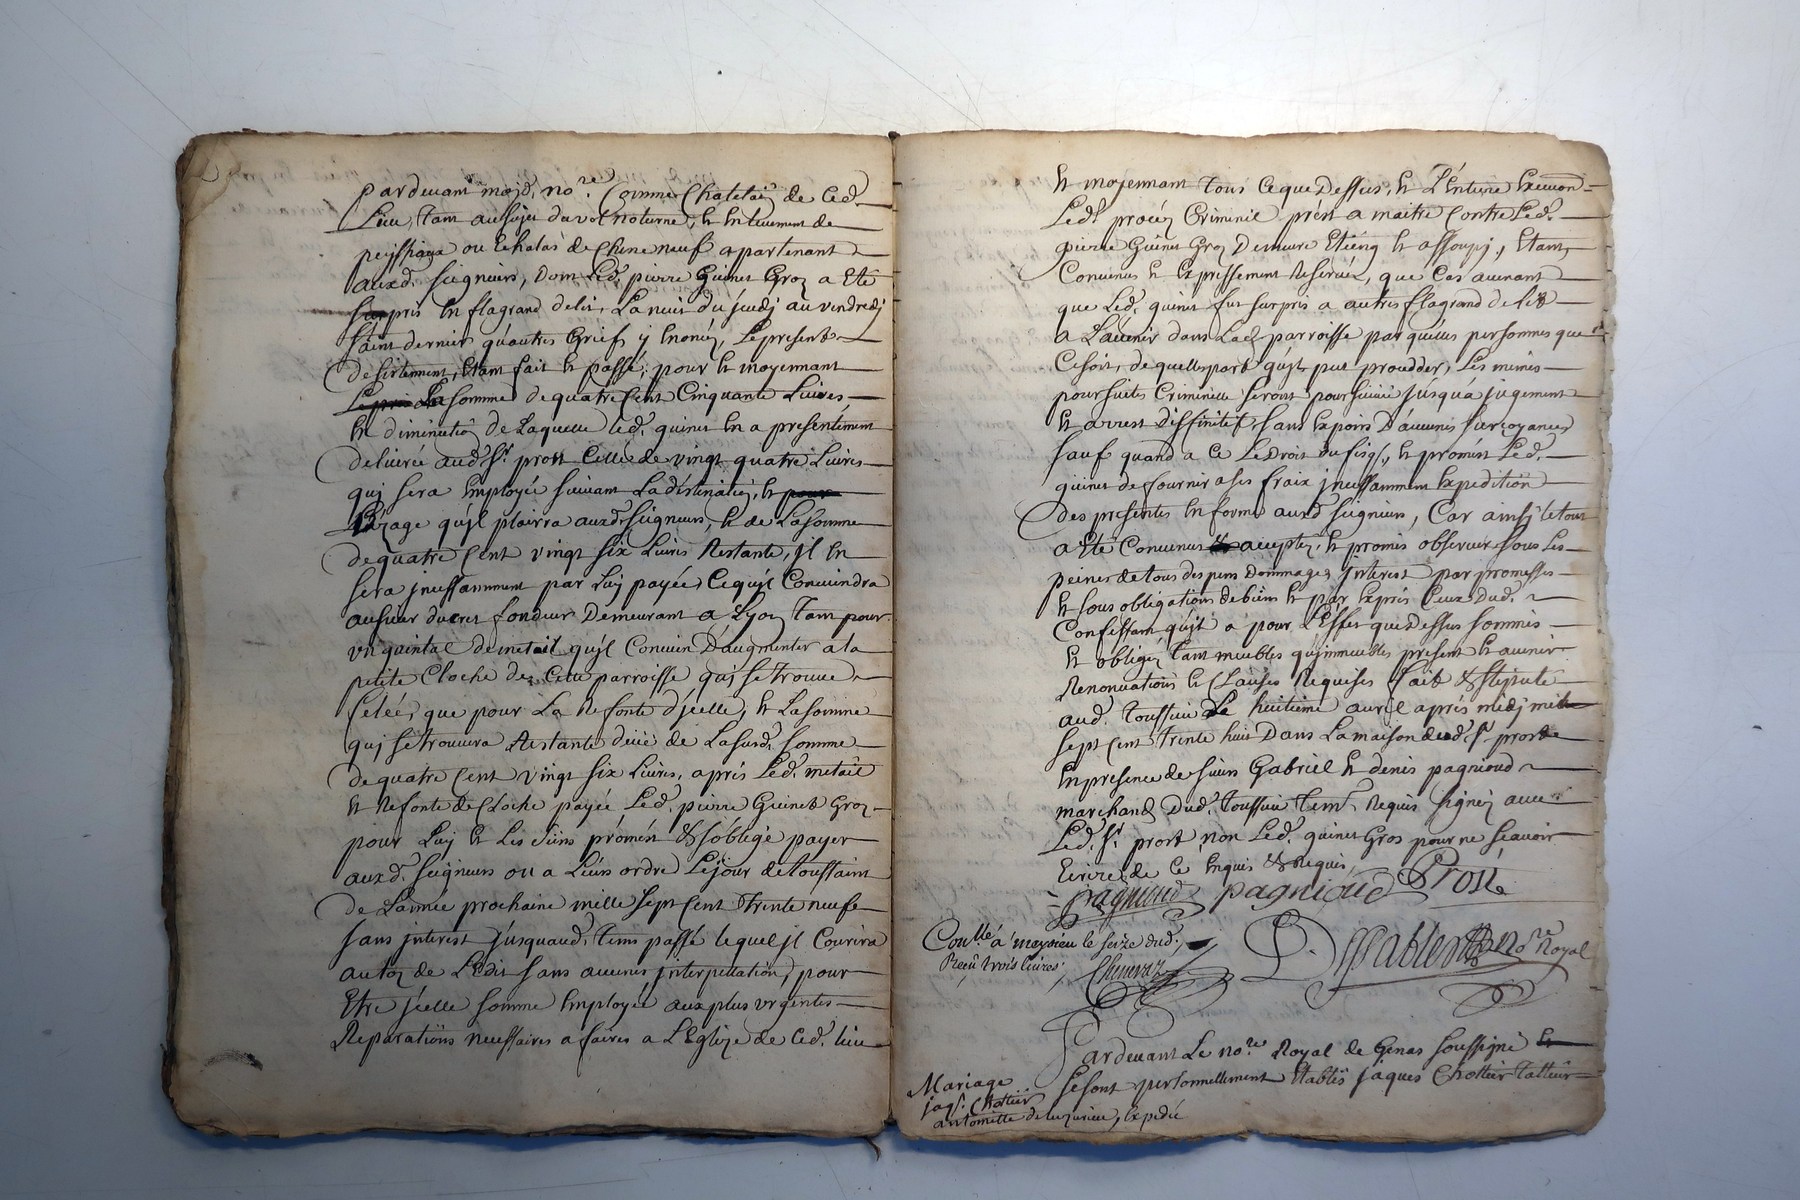 pardevant mojd. nore. Comme Chatelai de Ced.
Lieu, tam ausujet du vol noturne, et Enlevement de
peyssiaga ou Echalas de Chene neuf apartenant
auxd. seigneurs, Dom Led. pierre Guinet Groz a Eté
surpris En flagrand delit, La nuit du jeudj au vendredj
saint dernier qu'autres Griefs y Enoncez, Le present
desistement, Etam fait et passé, pour et moyennant
La somme de quatre Cent Cinquante Livres
En diminution de Laquelle led. guinet En a presentement
delivrée aud. Sr. prost Celle de vingt quatre Livres
quj sera Employée suivant La destination, et
usage qu'jl plaira auxd. seigneurs, et de La somme
de quatre Cent vingt six Livres Restante, jl En
sera jncessamment par Luj payée Cequ'jl Conviendra
au sieur ducret fondeur Demeurant a Lyon Tam pour
un quintal de metail qu'jl Convien D'augmenter a la
petite Cloche de Cette parroisse quj se trouve
felée, que pour La Refonte d'jcelle, et La somme
quj se trouvera Restante düe de La susd. somme
de quatre Cent vingt six Livres, aprés Led. metail
et Refonte de Cloche payée Led. pierre Guinet Groz
pour Luj et Les siens promêt & s'oblige payer
auxd. seigneurs ou a Leurs ordre Le jour de toussaint
de L'année prochaine mille sept Cent Trente neufe
sans jnterest jusquaud. tems passé lequel jl Courira
au taz de L'edit sans aucune jnterpellation, pour
Etre jcelle somme Employée aux plus urgentes
Reparations necessaires a faires a L'Eglize de Ced. lieu
et moyennant tous Ceque Dessus, et L'Entiere Execution
Led. procez Criminel prest a maitre Contre Led.
pierre Guinet Groz Demeure Eteing et assoupj, Etam
Convenus et Expressement Reservée, que Cas avenant
que Led. guinet fut surpris a autres flagrand delits
a L'avenir dans Lad. parroisse par quelles personnes que
Ce soit, de quelle part qu'jls pue procedder, Les mémes
poursuites Criminelle seront poursuivie jusqu'a jugement
et arrest diffinitif sans Espoirs D'aucunes surcoyances
sauf quand a Ce Le Drois du fisq., et promêt Led.
guinet de fournir a ses fraix jncessamment Expedition
des presentes En forme auxd. seigneurs, Car ainsj le tout
a Eté Convenus accepter, et promis observer sous Les
peines de tous despens Dommages jnterest par promesses
et sous obligations de biens et par Exprés Ceux Dud.
Confessam qu'jl a pour L'Effet que Dessus sommis
et obligez tant meubles qu'jmmeubles present et avenir
Renonciations et Clauses Requises fait & stipulé
aud. Toussieu Le huitieme avril aprés midj mil
sept Cent Trente huit Dans La maison dud. Sr. prost
En presence de sieurs Gabriel et denis pagnioud
marchand Dud. Toussieu Tem. Requis signez avec
Led. Sr. prost, non Led. guinet Gros pour ne sçavoir
Ecrire de Ce Enquis & Requis
pagnioud pagnioud Prost
Conllé a meyzieu le seize dud.
Reçu trois livres.
Chenevaz
nore. Royal
Pardevant Le nore. Royal de Genas soussigné
se sont personnellement Etablis jaques Chollier Tallieur
Mariage
jaqs. Chollier
antoinette de Luzurieu, Expedié